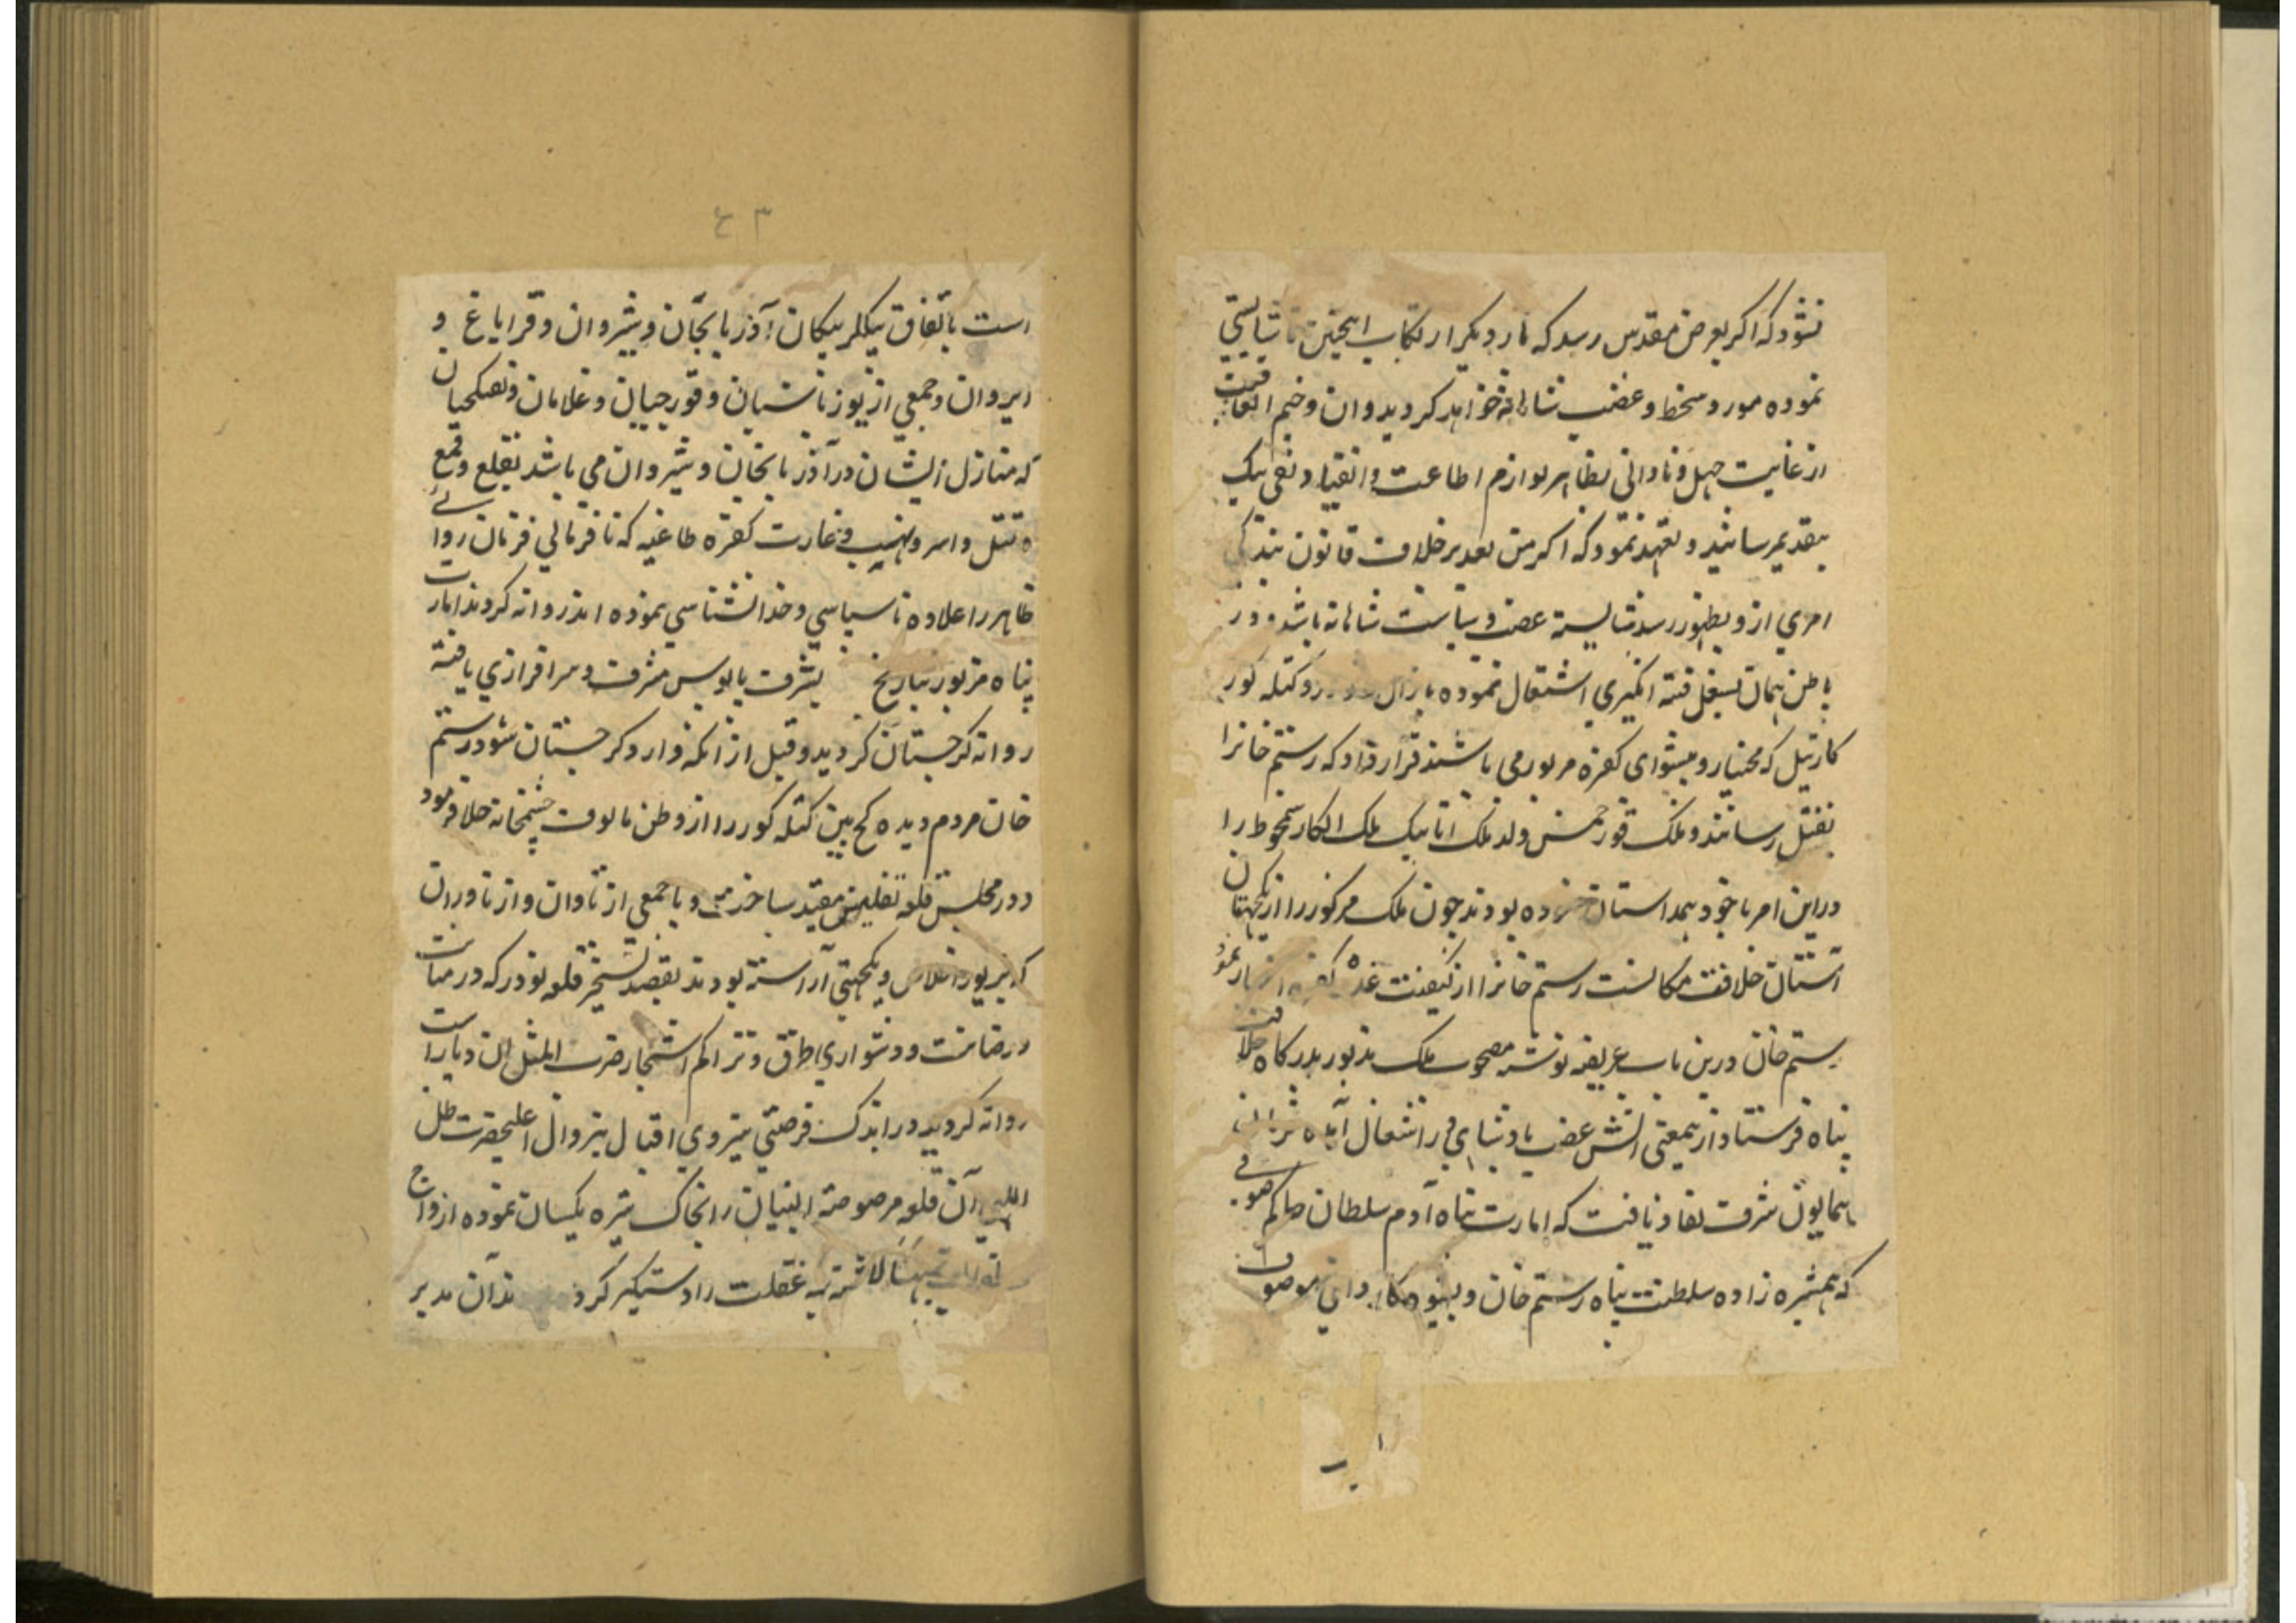 نشود که اکر بعرض مقدس رسد که بار دیکر ارتکاب اینچنین ناشایستی
نموده مورد سخط و غضب شاهانه خواهد کردید و ان وخیم العاقبت
از غایت جهل و نادانی بظاهر لوازم اطاعت و انقیاد و نفی
بتقدیم رسانید و تعهد نمود که اکر من بعد بر خلاف قانون بندکی
امری ازو بظهور رسد شایسته غضب و سیاست شاهانه باشد و در
باطن همان بشغل فتنه انکیزی اشتغال نموده با زال و کتله کور
کارتیل که مختار و پیشوای کفره مزبور می باشند قرار داد که رستم خانرا
بقتل رسانند و ملک قورخمس ولد ملک اتابیک ملک الکار سمخوط را
دراین امر با خود همداستان کرده بودند چون ملک مذکور را از یکجهتان
آستان خلافت مکانست رستم خانرا از کیفیت غدر کفره اخبار نمود
رستم خان درین باب عریضه نوشته مصحوب ملک مذبور بدرکاه خلافت
پناه فرستاد از یمعنی اتش غضب پادشاهی در اشتعال آمده فرمان
همایون شرف نفاذ یافت که امارت پناه آدم سلطان حاکم صوفی
که همشیره زاده سلطنت پناه رستم خان و کار وانی موصوف
۴۳
است باتفاق بیکلر بیکان آذربایجان و شیروان و قراباغ و
ایروان و جمعی از یوزباشیان و قورچیان و غلامان و تفنکچیان
که منازل ایشان در آذربایجان و شیروان می باشد بقلع و قمع
و قتل و اسر و نهب و غارت کفره طاغیه که نافرمانی فرمان روائے
ظاهر را علاوه ناسپاسی و خدانشناسی نموده اند روانه کردند امارت
پناه مزبور بتاریخ بشرف پابوس مشرف و سرافرازی یافته
روانه کرجستان کردید و قبل از انکه وارد کرجستان شود رستم
خان مردم دیده کج بین کتله کور را از وطن مالوف چشمخانه جلا فرمود
و در محبس قلعه تفلیس مقید ساخت و با جمعی از تاوان و از ناوران
که بزیور اخلاص و یکجهتی آراسته بودند بقصد تسخیر قلعه نوذر که در متانت
و رصانت و دشواری طرق و تراکم اشجار ضرب المثل ان دیار است
روانه کردید و در اندک فرصتی بنیروی اقبال بیزوال اعلیحضرت ظل
اللهی آن قلعه مرصوصة البنیان را بخاک تیره یکسان نموده ازواج
غفلت را دستکیر کرد آن مدبر